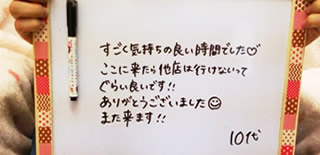 すごく気持ちの良い時間でした♡
ここに来たら他店は行けないって
ぐらい良いです!!
ありがとうございました☺
また来ます!!
10代